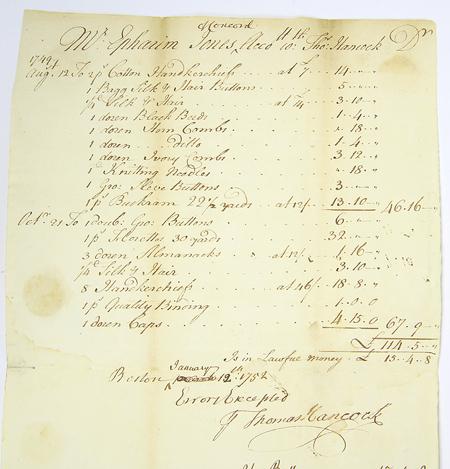 Concord
Mr. Ephraim Jones, Acco. wth Thos. Hancock Dr
1749
Aug. 12 To 2 ps Cotton Handkerchiefs at £7 14 " "
1 Bagg Silk & Hair Buttons 5 " "
Silk & Hair 3 . 10 "
1 dozen Black Beeds 1 . 4 "
1 dozen Horn Combs " 18 "
1 dozen ditto 1 . 4 "
1 dozen Ivory Combs 3 . 12 "
Knitting Needles " 18 "
1 Gro: Sleve Buttons 3 " "
1 ps Buckram 22 1/2 yards at 12/- 13 . 10 " 46 . 16 "
Octr. 21 To 1 doub: Gro: Buttons 6 " "
1 ps Floretto 30 yards 32 " "
3 dozen Almanacks at 12/- 1 . 16 "
Silk & Hair 3 . 10 "
8 Handkerchiefs at 46/- 18 . 8 "
1 ps Quality Binding 1 . 0 . 0
1 dozen Caps 4 . 15 . 0 67 . 9 "
£ 114 . 5 "
Is in Lawfue money £ 15 . 4 . 8
January
Boston 12th 1752
Errors Excepted
Thomas Hancock